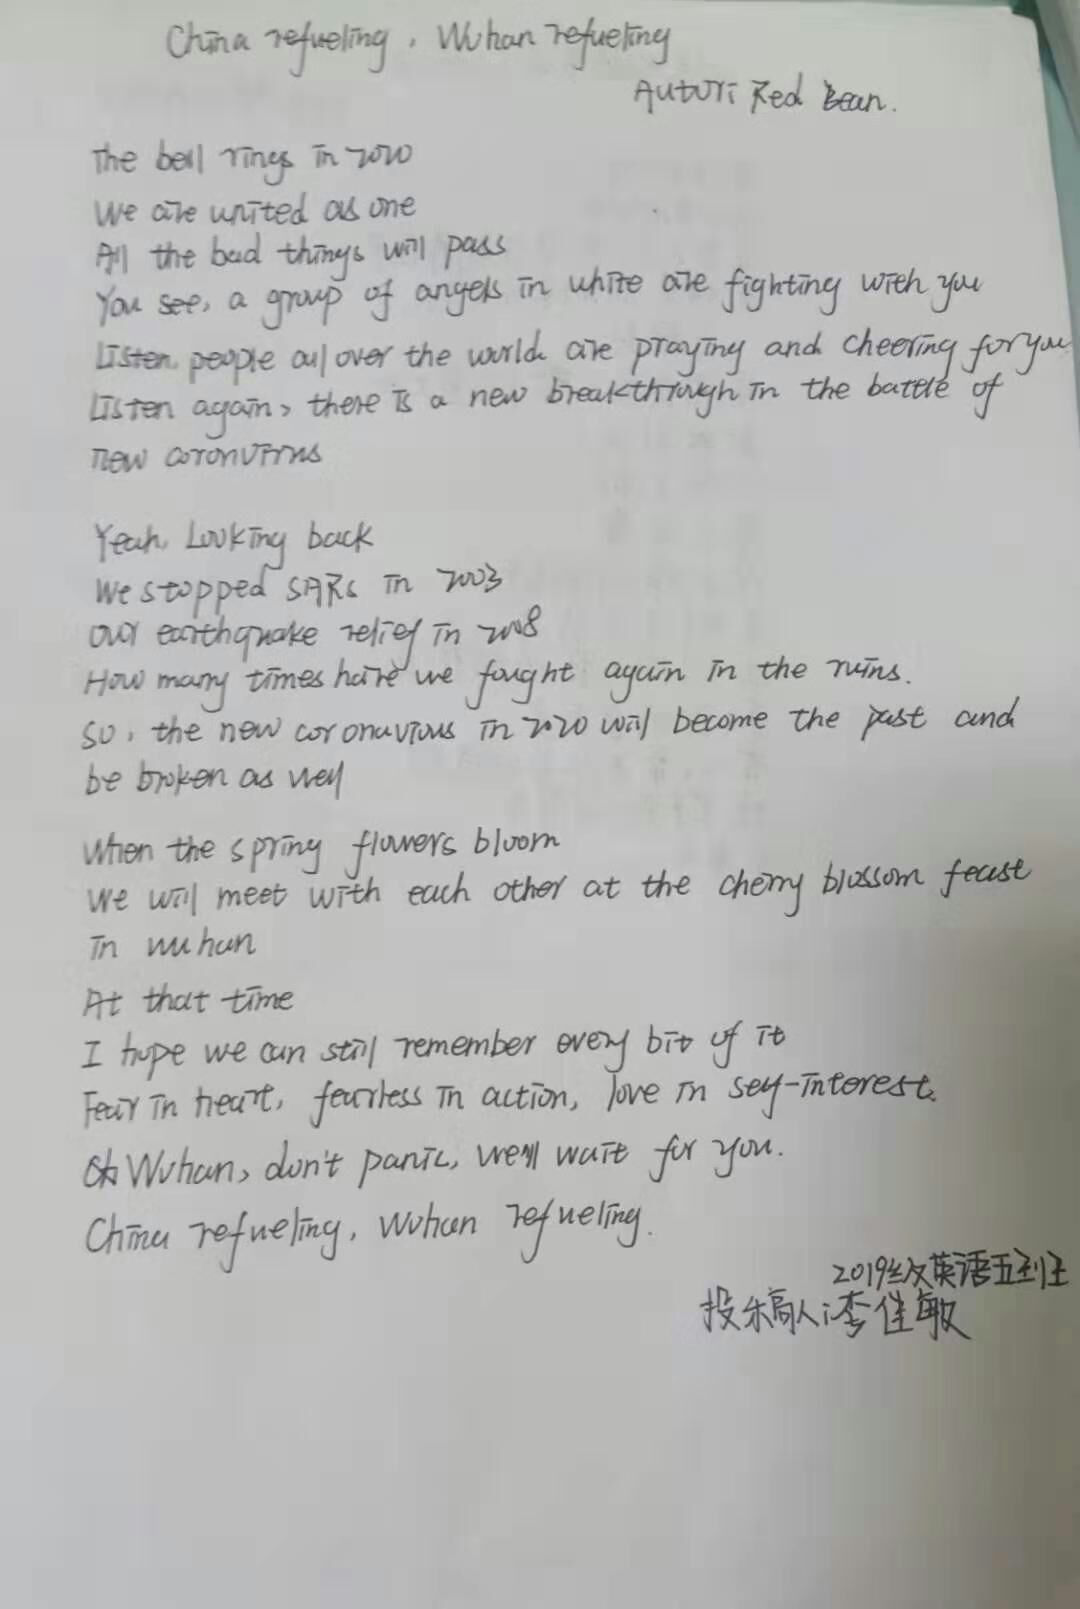 China refueling, Wuhan refueling
Autor: Red Bean.
The bell rings in 2020
We are united as one
All the bad things will pass
You see, a group of angels in white are fighting with you
Listen, people all over the world are praying and cheering for you
Listen again, there is a new breakthrough in the battle of
new coronvirus
Yeah, Looking back
We stopped SARs in 2003
Our earthquake relief in 2008
How many times have we fought again in the ruins.
So, the new coronavirous in 2020 will become the past and
be broken as well
When the spring flowers bloom
We will meet with each other at the cherry blossom feast
in wuhan
At that time
I hope we can still remember every bit of it
Fear in heart, fearless in action, love in self-interest.
Oh Wuhan, don't panic, we'll wait for you.
China refueling, Wuhan refueling.
2019级英语五班
投稿人:李佳敏